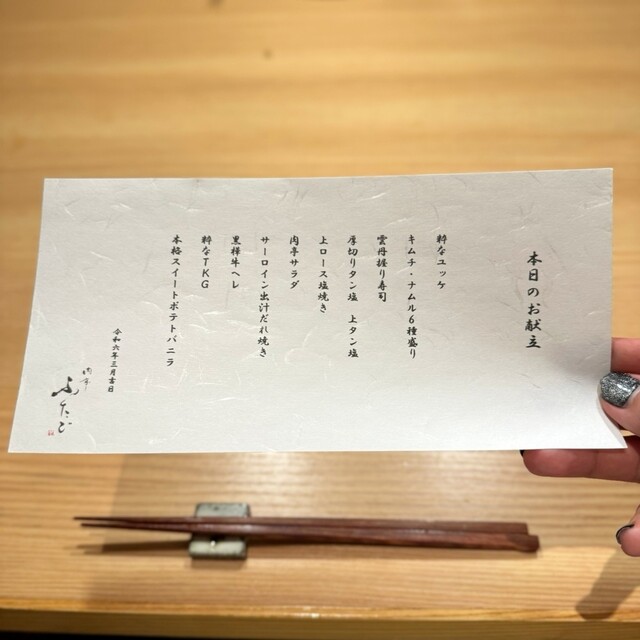 本日のお献立
粋なユッケ
キムチ・ナムル6種盛り
雲丹握り寿司
厚切りタン塩 上タン塩
上ロース塩焼き
肉亭サラダ
サーロイン出汁だれ焼き
黒樺牛ヘレ
粋なTKG
本格スイートポテトバニラ
令和六年三月吉日
肉亭
ふたご